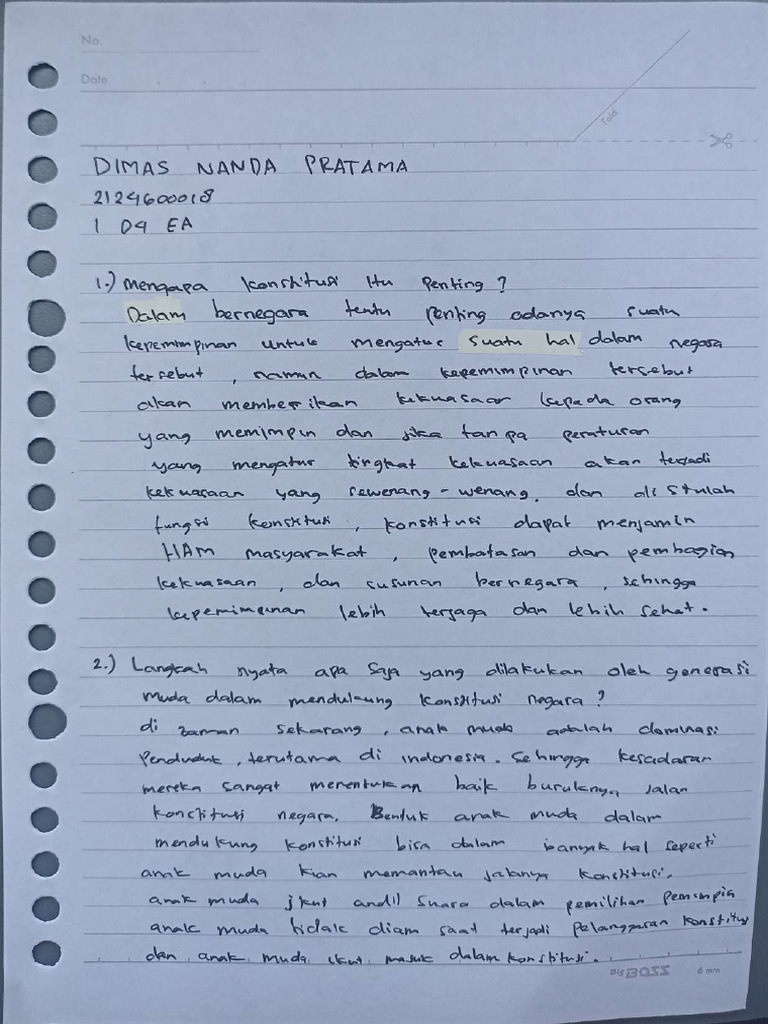 No.
Date
Fold
DIMAS NANDA PRATAMA
2124600018
1 D4 EA
1.) Mengapa konstitusi itu penting ?
Dalam bernegara tentu penting adanya suatu
kepemimpinan untuk mengatur suatu hal dalam negara
tersebut , namun dalam kepemimpinan tersebut
akan memberikan kekuasaan kepada orang
yang memimpin dan jika tanpa peraturan
yang mengatur tingkat kekuasaan akan terjadi
kekuasaan yang sewenang - wenang, dan disitulah
fungsi konstitusi , konstitusi dapat menjamin
HAM masyarakat , pembatasan dan pembagian
kekuasaan , dan susunan bernegara , sehingga
kepemimpinan lebih terjaga dan lebih sehat.
2.) Langkah nyata apa saja yang dilakukan oleh generasi
muda dalam mendukung konstitusi negara ?
di zaman sekarang , anak muda adalah dominasi
Penduduk , terutama di indonesia. Sehingga kesadaran
mereka sangat menentukan baik buruknya jalan
konstitusi negara. Bentuk anak muda dalam
mendukung konstitusi bisa dalam banyak hal seperti
anak muda kian memantau jalanya konstitusi.
anak muda ikut andil suara dalam pemilihan pemimpin
anak muda tidak diam saat terjadi pelanggaran konstitusi
dan anak muda ikut masuk dalam konstitusi.
BOSS 6 mm